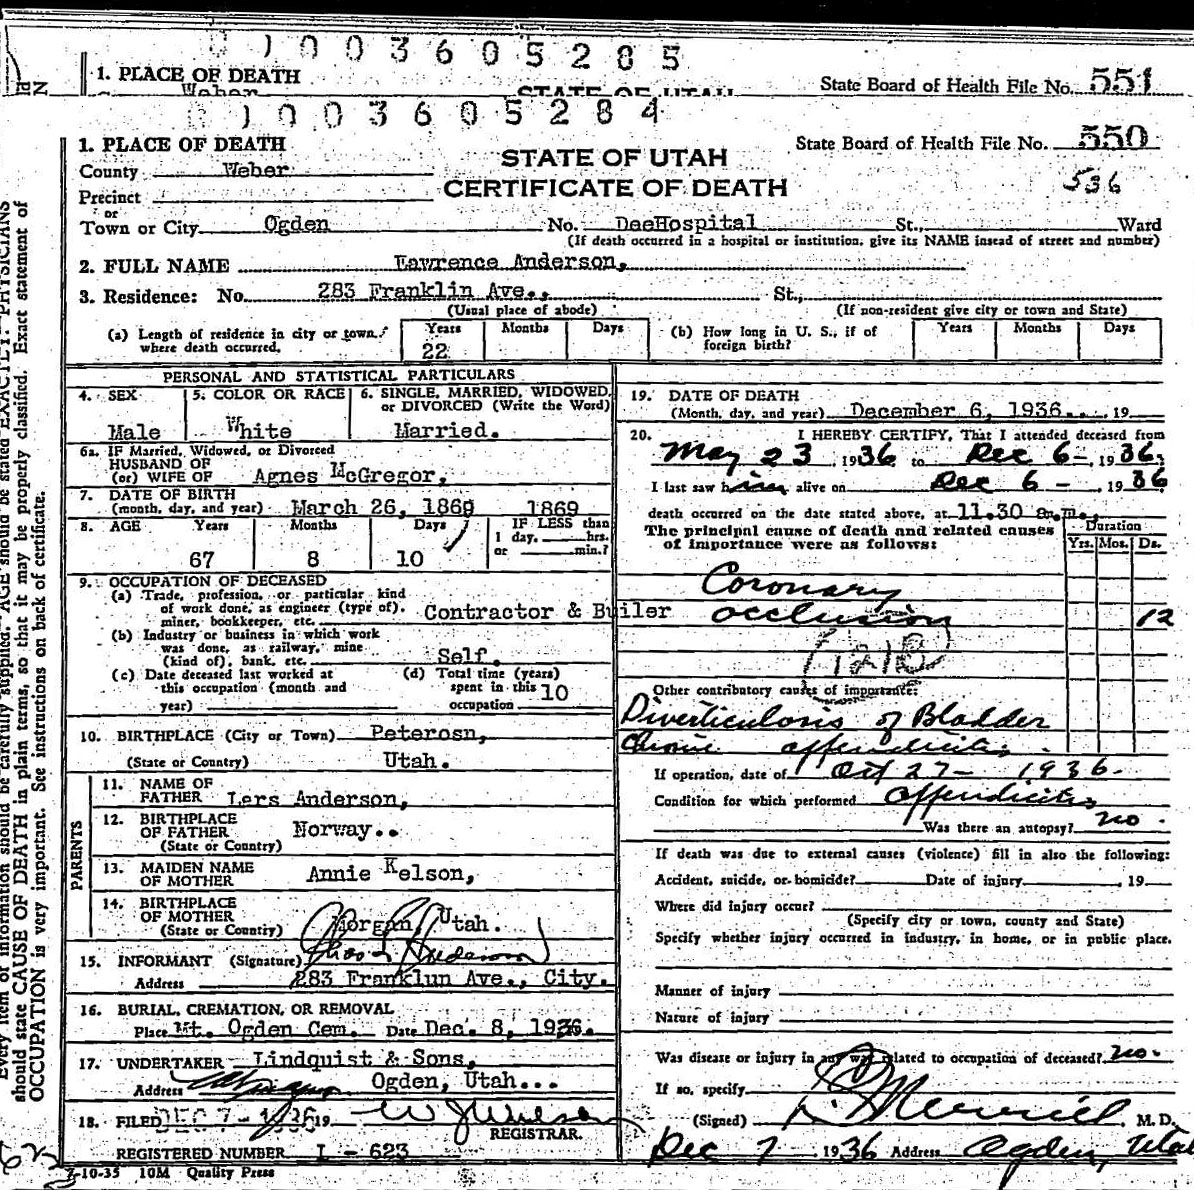 0 0 3 6 0 5 2 8 5
1. PLACE OF DEATH
State Board of Health File No. 551
Weber
STATE OF UTAH
0 0 3 6 0 5 2 8 4
1. PLACE OF DEATH
State Board of Health File No. 550
STATE OF UTAH
County Weber
CERTIFICATE OF DEATH
536
Precinct
or
Town or City Ogden No. DeeHospital St., Ward
(If death occurred in a hospital or institution, give its NAME insead of street and number)
2. FULL NAME Lawrence Anderson,
3. Residence: No. 283 Franklin Ave., St.,
(Usual place of abode) (If non-resident give city or town and State)
(a) Length of residence in city or town where death occurred. Years 22 Months Days
(b) How long in U. S., if of foreign birth? Years Months Days
PERSONAL AND STATISTICAL PARTICULARS
4. SEX 5. COLOR OR RACE 6. SINGLE, MARRIED, WIDOWED, or DIVORCED (Write the Word)
Male White Married.
6a. IF Married, Widowed, or Divorced
HUSBAND OF
(or) WIFE OF Agnes McGregor,
7. DATE OF BIRTH
(month, day, and year) March 26, 1869 1869
8. AGE Years Months Days IF LESS than
1 day, hrs.
or min.?
67 8 10
9. OCCUPATION OF DECEASED
(a) Trade, profession, or particular kind
of work done, as engineer (type of).
miner, bookkeeper, etc. Contractor & Builer
(b) Industry or business in which work
was done, as railway, mine
(kind of), bank, etc. Self.
(c) Date deceased last worked at
this occupation (month and
year)
(d) Total time (years)
spent in this
occupation 10
10. BIRTHPLACE (City or Town) Peterosn,
(State or Country) Utah.
PARENTS
11. NAME OF
FATHER Lers Anderson,
12. BIRTHPLACE
OF FATHER
(State or Country) Norway..
13. MAIDEN NAME
OF MOTHER Annie Kelson,
14. BIRTHPLACE
OF MOTHER
(State or Country) Morgan, Utah.
15. INFORMANT (Signature) Anderson
Address 283 Franklun Ave., City.
16. BURIAL, CREMATION, OR REMOVAL
Place Mt. Ogden Cem. Date Dec. 8, 1936.
17. UNDERTAKER Lindquist & Sons,
Address Ogden, Utah...
18. FILED DEC 7 - 1936 19
REGISTRAR.
REGISTERED NUMBER I - 623
7-10-35 10M Quality Press
19. DATE OF DEATH
(Month, day, and year) December 6, 1936. , 19
20. I HEREBY CERTIFY, That I attended deceased from
May 23 1936 to Dec 6 - , 1936.
I last saw him alive on Dec 6 - , 1936
death occurred on the date stated above, at 11.30 a.m.,
The principal cause of death and related causes
of importance were as follows:
Duration
Yrs. Mos. Ds.
Coronary
occlusion 12
Other contributory causes of importance:
Diverticulosis of Bladder
Chronic appendicitis.
If operation, date of Oct 27 - 1936.
Condition for which performed appendicitis
Was there an autopsy? no.
If death was due to external causes (violence) fill in also the following:
Accident, suicide, or homicide? Date of injury , 19
Where did injury occur?
(Specify city or town, county and State)
Specify whether injury occurred in industry, in home, or in public place.
Manner of injury
Nature of injury
Was disease or injury in any way related to occupation of deceased? no.
If so, specify
(Signed) Merrill M. D.
Dec 7 1936 Address Ogden, Utah
should state CAUSE OF DEATH in plain terms, so that it may be properly classified. Exact statement of
OCCUPATION is very important. See instructions on back of certificate.